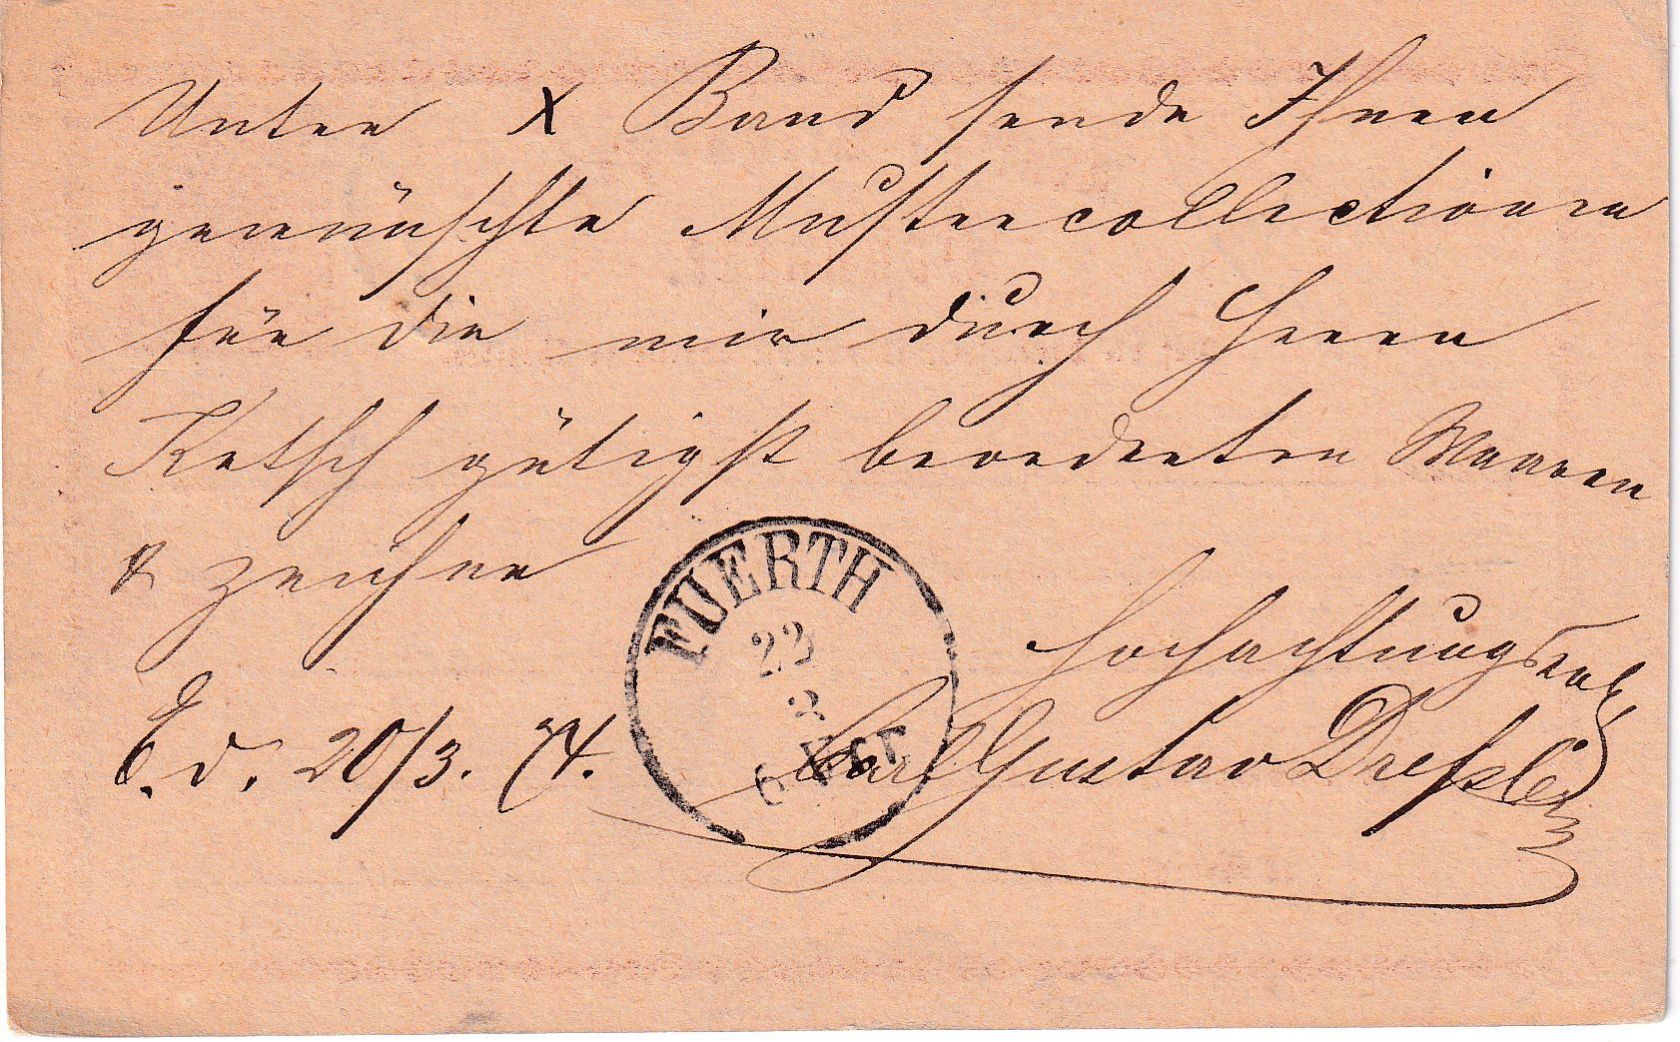 Unter X Band sende Ihnen
gewünschte Mustercollectionen
für die mir durch Herrn
Ketsch gütigst beorderten Waaren
& zeichne
Hochachtungsvoll
E. d. 20/3. 74.
Carl Gustav Dreßler
FUERTH
22
3